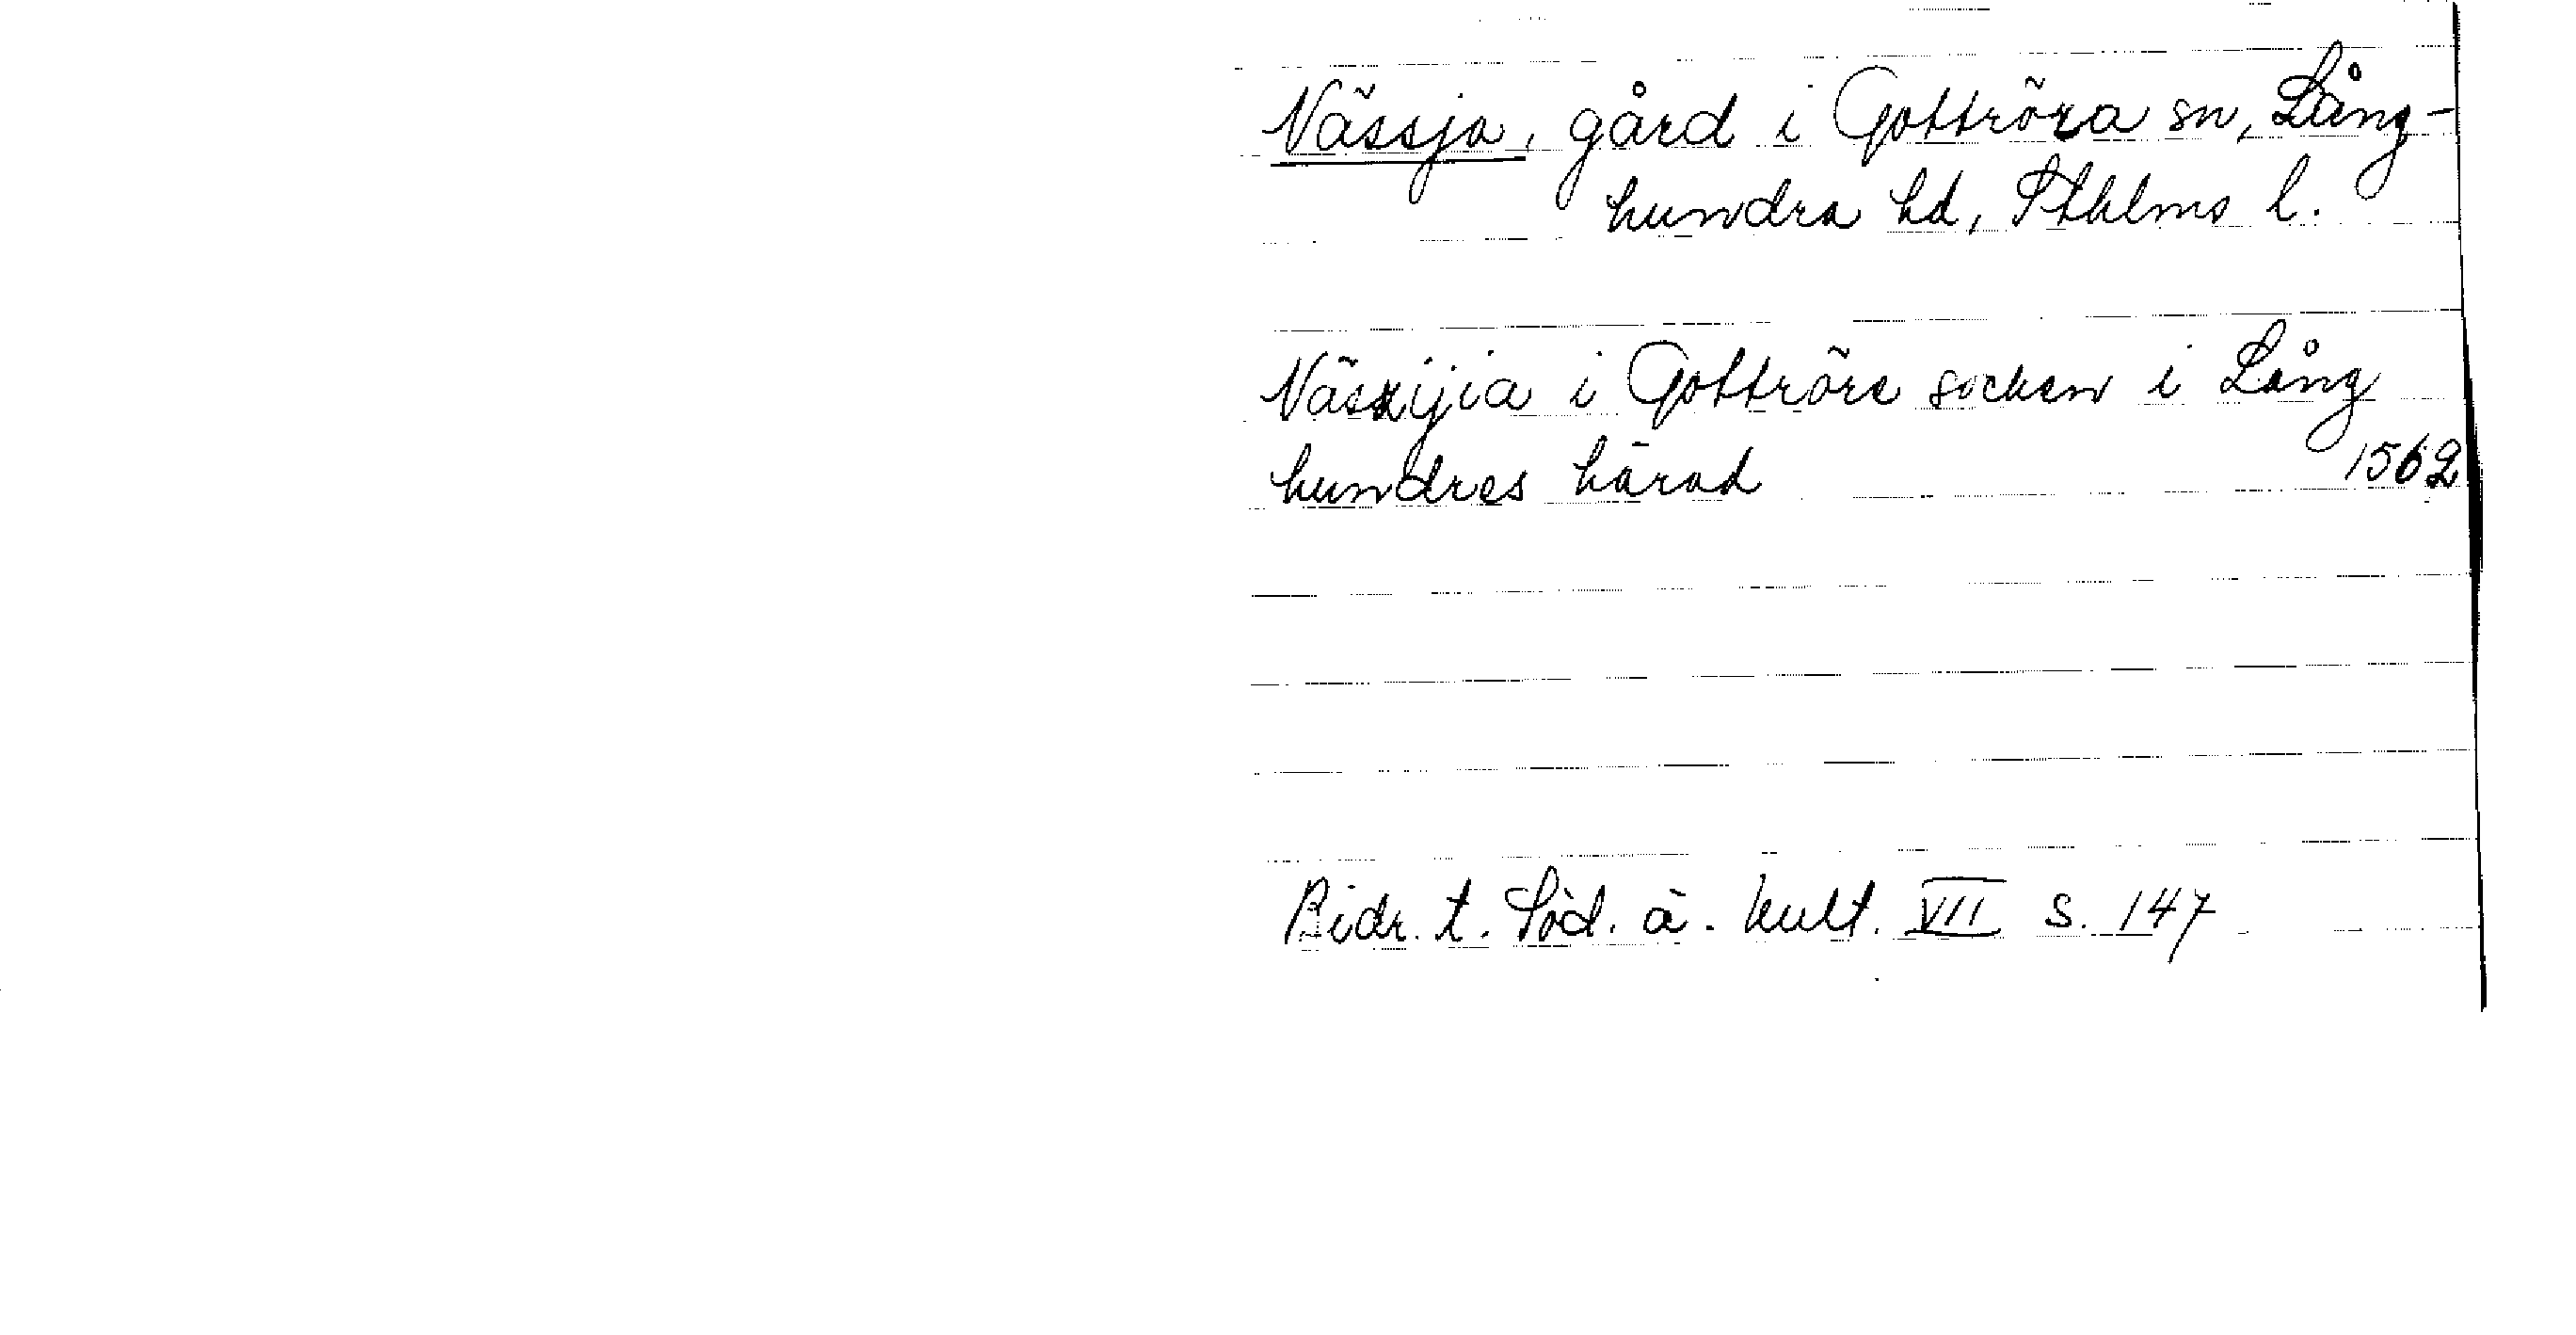 Nässja, gård i Gottröra sn, Lång-
hundra hd, Sthlms l.
i Gottröra socken i Lång
hundres härad 1562
Bidr. t. Söd. ä. kult. VII s. 147